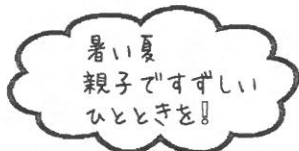 暑い夏
親子ですずしい
ひとときを!